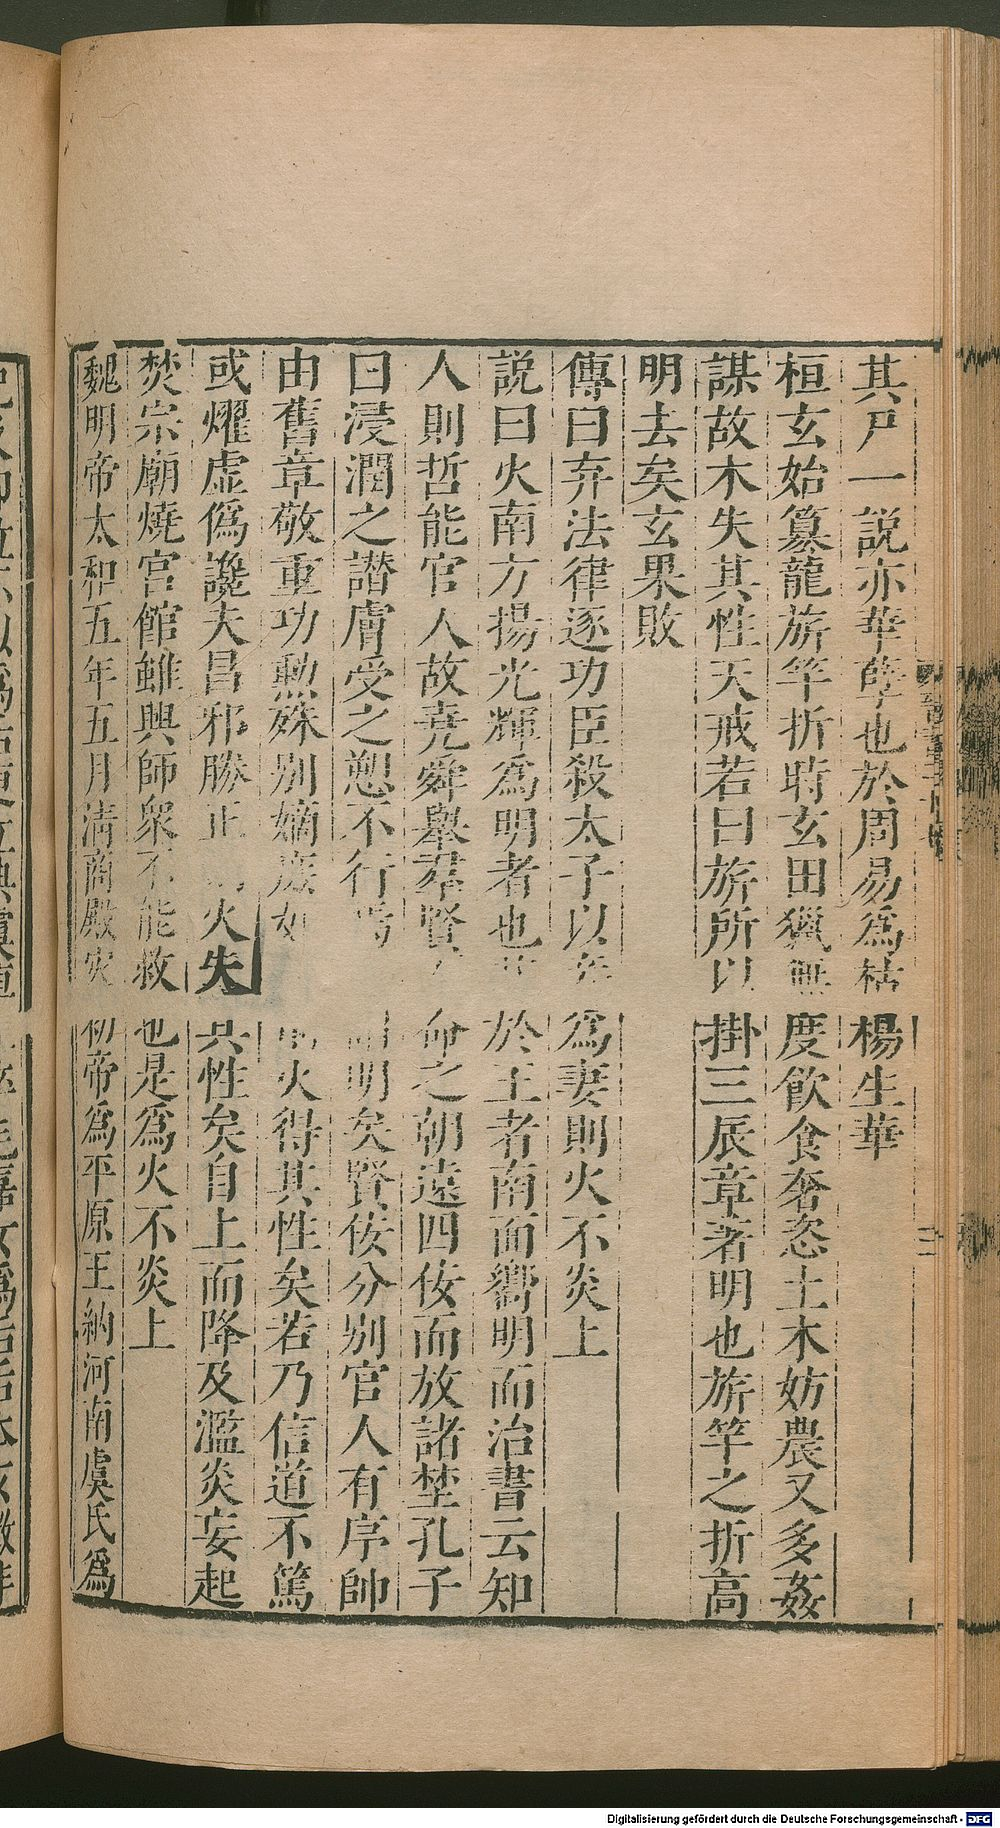 其戶一說亦華孽也於周易爲枯楊生華
桓玄始篡龍旂竿折時玄田獵無度飲食奢恣土木妨農又多姦
謀故木失其性天戒若曰旂所以掛三辰章著明也旂竿之折高
明去矣玄果敗
傳曰弃法律逐功臣殺太子以妾爲妻則火不炎上
說曰火南方揚光輝爲明者也其於王者南面嚮明而治書云知
人則哲能官人故堯舜舉羣賢而命之朝遠四佞而放諸埜孔子
曰浸潤之譖膚受之愬不行焉可謂明矣賢佞分別官人有序帥
由舊章敬重功勲殊別嫡庶如此則火得其性矣若乃信道不篤
或燿虛僞讒夫昌邪勝正則火失其性矣自上而降及濫炎妄起
焚宗廟燒宮館雖興師衆不能救也是爲火不炎上
魏明帝太和五年五月淸商殿灾初帝爲平原王納河南虞氏爲
Digitalisierung gefördert durch die Deutsche Forschungsgemeinschaft - DFG